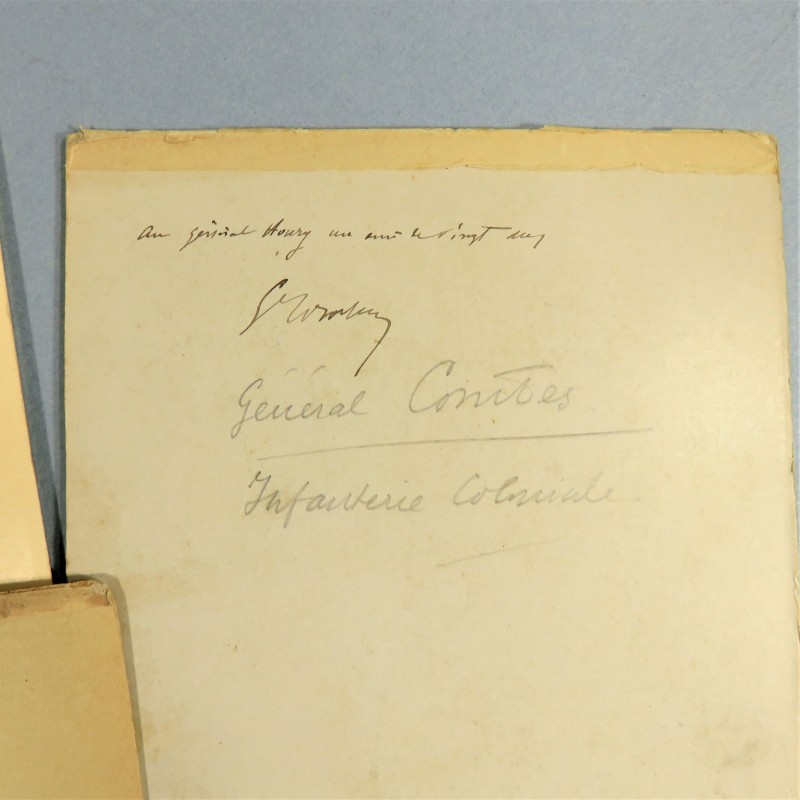 au général Henry un ami de vingt ans
Général Combes
Infanterie Coloniale